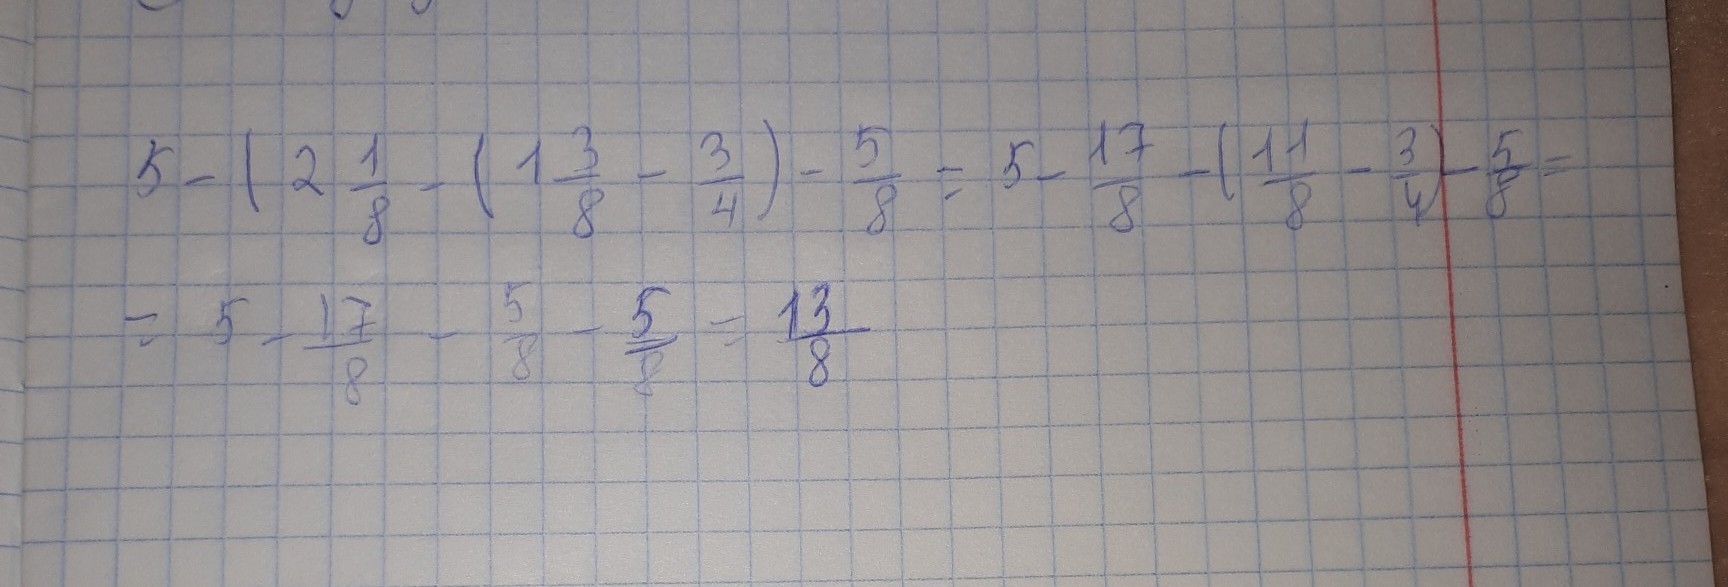 5 - ( 2 1/8 - ( 1 3/8 - 3/4 ) - 5/8 = 5 - 17/8 - ( 11/8 - 3/4 ) - 5/8 =
= 5 - 17/8 - 5/8 - 5/8 = 13/8